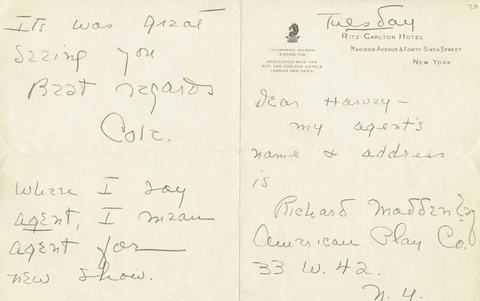 29
Tuesday
RITZ-CARLTON HOTEL
MADISON AVENUE & FORTY SIXTH STREET
NEW YORK
TELEGRAPHIC ADDRESS
RITZCARLTON
ASSOCIATED WITH THE
RITZ AND CARLTON HOTELS
LONDON AND PARIS
Dear Harvey –
my agent's
name & address
is
Richard Madden
American Play Co.
33 W. 42.
N.Y.
Its was great
Seeing you
Best regards
Cole.
Where I say
agent, I mean
agent for
new show.